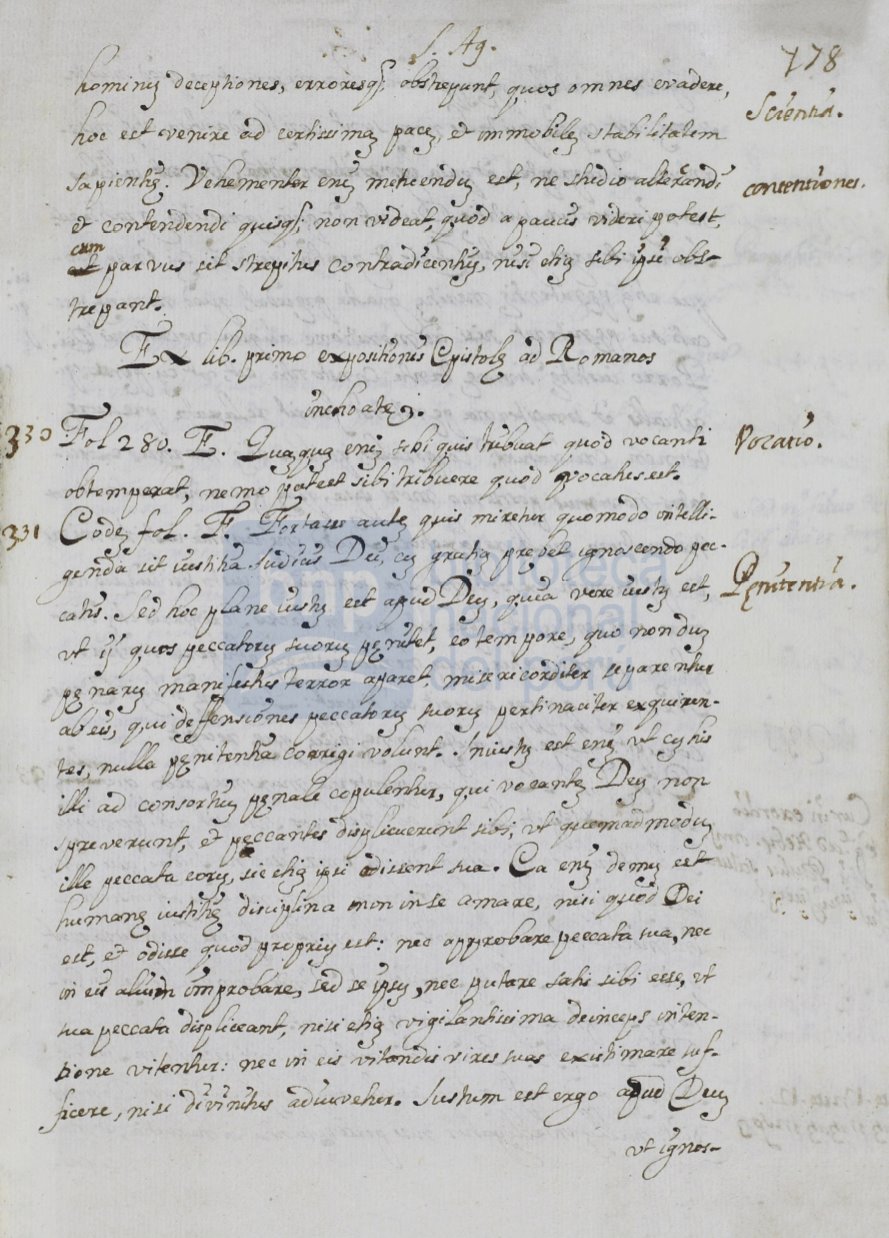 S. Ag.
178
hominũ deceptiones, erroresq; obstrepunt, quos omnes evadere,
Scientia.
hoc est venire ad certissimã pacẽ, et immobilẽ stabilitatem
sapientię. Vehementer enĩ metuendũ est, ne studio altercandi
contentiones.
et contendendi quisq; non videat, quod a paucis videri potest,
cum
et parvus sit strepitus contradicentiũ, nisi etiã sibi ipsi obs-
trepant.
Ex lib. primo expositionis Epistolę ad Romanos
inchoatę.
330 Fol 280. E. Quãquã enĩ sibi quis tribuat quod vocanti
Vocatio.
obtemperat, nemo potest sibi tribuere quod vocatus est.
331 Codẽ fol. F. Fortasse autẽ quis miretur quomodo intelli-
genda sit iustitia Judicis Dei, cũ gratiã prębet ignoscendo pec-
Pęnitentia.
catis. Sed hoc plane iustũ est apud Deũ, quia vere iustũ est,
vt ij quos peccatorũ suorũ pęnitet, eo tempore, quo nondũ
pęnarũ manifestus terror aparet misericorditer separentur
ab eis, qui deffensiones peccatorũ suorũ pertinaciter exquiren-
tes, nulla pęnitentia corrigi volunt. Iniustũ est enĩ vt cũ his
illi ad consortiũ pęnale copulentur, qui vocantẽ Deũ non
spreverunt, et peccantes displicuerunt sibi, vt quemadmodũ
ille peccata eorũ, sic etiã ipsi odissent sua. Ea enĩ demũ est
humanę iustitię disciplina non in se amare, nisi quod Dei
est, et odisse quod propriũ est: nec approbare peccata sua, nec
in eis alium improbare, sed se ipsũ, nec putare satis sibi esse, vt
sua peccata displiceant, nisi etiã vigilantissima deinceps inten-
tione vitentur: nec in eis vitandis vires suas existimare suf-
ficere, nisi divinitus adiuvetur. Justum est ergo apud Deũ
vt ignos-